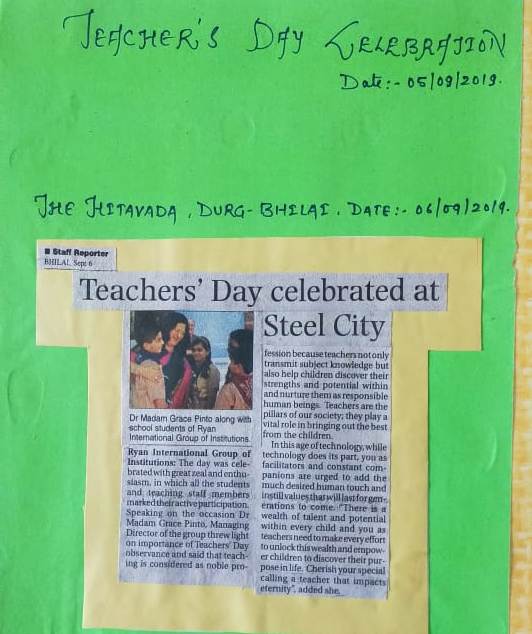 TEACHER'S DAY CELEBRATION
Date:- 05/09/2019.
THE HITAVADA, DURG-BHILAI. DATE:- 06/09/2019.
Staff Reporter
BHILAI, Sept 6
Teachers' Day celebrated at
Steel City
Dr Madam Grace Pinto along with
school students of Ryan
International Group of Institutions.
Ryan International Group of
Institutions: The day was cele-
brated with great zeal and enthu-
siasm, in which all the students
and teaching staff members
marked their active participation.
Speaking on the occasion Dr
Madam Grace Pinto, Managing
Director of the group threw light
on importance of Teachers' Day
observance and said that teach-
ing is considered as noble pro-
fession because teachers not only
transmit subject knowledge but
also help children discover their
strengths and potential within
and nurture them as responsible
human beings. Teachers are the
pillars of our society; they play a
vital role in bringing out the best
from the children.
In this age of technology, while
technology does its part, you as
facilitators and constant com-
panions are urged to add the
much desired human touch and
instil values that will last for gen-
erations to come. "There is a
wealth of talent and potential
within every child and you as
teachers need to make every effort
to unlock this wealth and empow-
er children to discover their pur-
pose in life. Cherish your special
calling a teacher that impacts
eternity", added she.